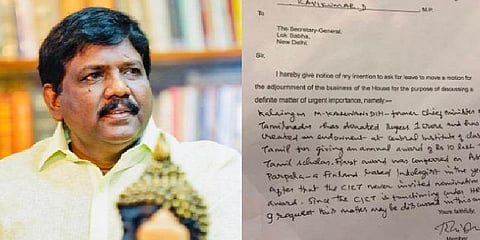 RAVIKUMAR D
M.P.
To
The Secretary-General,
Lok Sabha,
New Delhi.
Sir,
I hereby give notice of my intention to ask for leave to move a motion for
the adjournment of the business of the House for the purpose of discussing a
definite matter of urgent importance, namely—
M. KARUNANIDHI - former Chief Minister
Tamilnadu has donated Rupees 1 crore and has
created an endowment at central institute of clas
Tamil for giving an annual award of Rs 10 lakh
Tamil scholars. First award was conferred on
Parpola - a Finland based Indologist in the
After that the CICT never invited nomination
award. Since the CICT is functioning under
I request this matter may be discussed in this
Yours faithfully,
Member